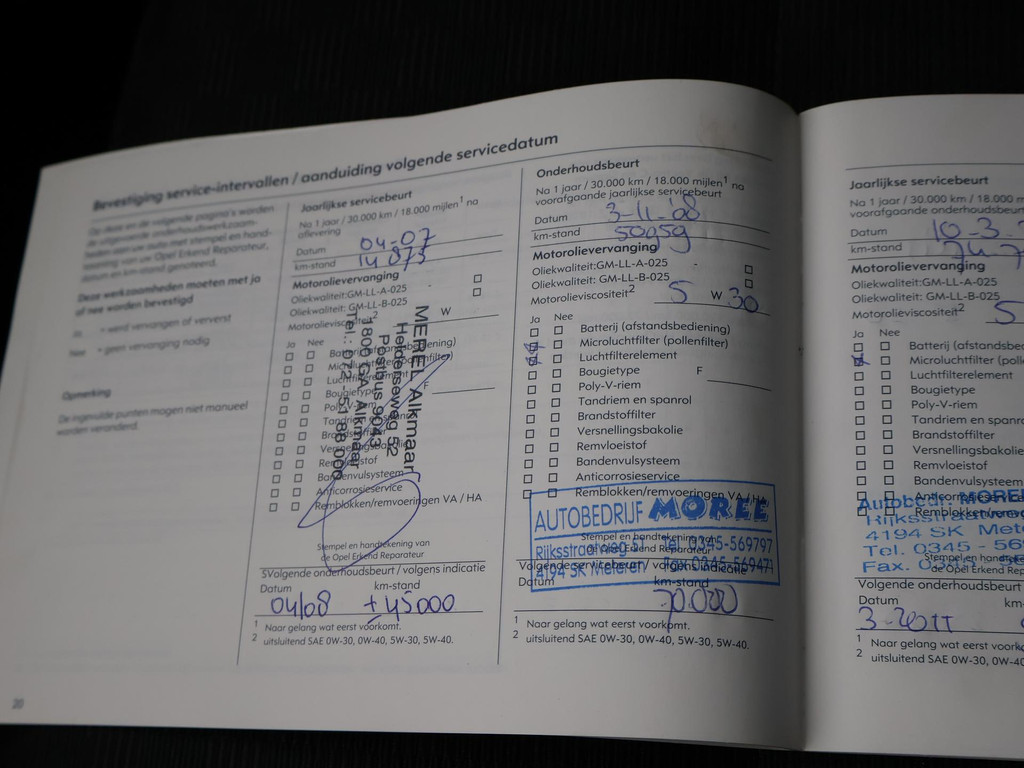 Bevestiging service-intervallen / aanduiding volgende servicedatum
Op deze en de volgende pagina's worden
de uitgevoerde onderhoudswerkzaam-
heden aan uw auto met stempel en hand-
tekening van uw Opel Erkend Reparateur,
datum en km-stand genoteerd.
Deze werkzaamheden moeten met ja
of nee worden bevestigd
Ja = werd vervangen of ververst
Nee = geen vervanging nodig
Opmerking
De ingevulde punten mogen niet manueel
worden veranderd.
20
Jaarlijkse servicebeurt
Na 1 jaar / 30.000 km / 18.000 mijlen1 na
aflevering
Datum 04-07
km-stand 14 073
Motorolievervanging
Oliekwaliteit:GM-LL-A-025
Oliekwaliteit: GM-LL-B-025
Motorolieviscositeit2 W
Ja Nee
Batterij (afstandsbediening)
Microluchtfilter (pollenfilter)
Luchtfilterelement
Bougietype F
Poly-V-riem
Tandriem en spanrol
Brandstoffilter
Versnellingsbakolie
Remvloeistof
Bandenvulsysteem
Anticorrosieservice
Remblokken/remvoeringen VA / HA
MEREL Alkmaar
Helderseweg 52
Postbus 9043
1800 GA Alkmaar
Tel.: 072 - 51 88 000
Stempel en handtekening van
de Opel Erkend Reparateur
SVolgende onderhoudsbeurt / volgens indicatie
Datum km-stand
04/08 ± 45000
1 Naar gelang wat eerst voorkomt.
2 uitsluitend SAE 0W-30, 0W-40, 5W-30, 5W-40.
Onderhoudsbeurt
Na 1 jaar / 30.000 km / 18.000 mijlen1 na
voorafgaande jaarlijkse servicebeurt
Datum 3-11-'08
km-stand 50959
Motorolievervanging
Oliekwaliteit:GM-LL-A-025
Oliekwaliteit: GM-LL-B-025
Motorolieviscositeit2 5 W 30
Ja Nee
Batterij (afstandsbediening)
Microluchtfilter (pollenfilter)
Luchtfilterelement
Bougietype F
Poly-V-riem
Tandriem en spanrol
Brandstoffilter
Versnellingsbakolie
Remvloeistof
Bandenvulsysteem
Anticorrosieservice
Remblokken/remvoeringen VA / HA
AUTOBEDRIJF MOREE
Rijksstraatweg 51 Tel. 0345-569797
4194 SK Meteren Fax 0345-569471
Stempel en handtekening van
de Opel Erkend Reparateur
Volgende servicebeurt / volgens indicatie
Datum km-stand
70.000
1 Naar gelang wat eerst voorkomt.
2 uitsluitend SAE 0W-30, 0W-40, 5W-30, 5W-40.
Jaarlijkse servicebeurt
Na 1 jaar / 30.000 km / 18.000
voorafgaande onderhoudsbeur
Datum 10-3-
km-stand 74.7
Motorolievervanging
Oliekwaliteit:GM-LL-A-025
Oliekwaliteit: GM-LL-B-025
Motorolieviscositeit2 5
Ja Nee
Batterij (afstandsbe
Microluchtfilter (po
Luchtfilterelement
Bougietype
Poly-V-riem
Tandriem en spanro
Brandstoffilter
Versnellingsbakolie
Remvloeistof
Bandenvulsysteem
Anticorrosieservice
Remblokken/remvoe
Autobedr. MOREE
Rijksstraatweg
4194 SK Mete
Tel. 0345 - 56
Fax. 0345
Stempel en handte
de Opel Erkend Rep
Volgende onderhoudsbeurt
Datum km-
3-2011
1 Naar gelang wat eerst voork
2 uitsluitend SAE 0W-30, 0W-40